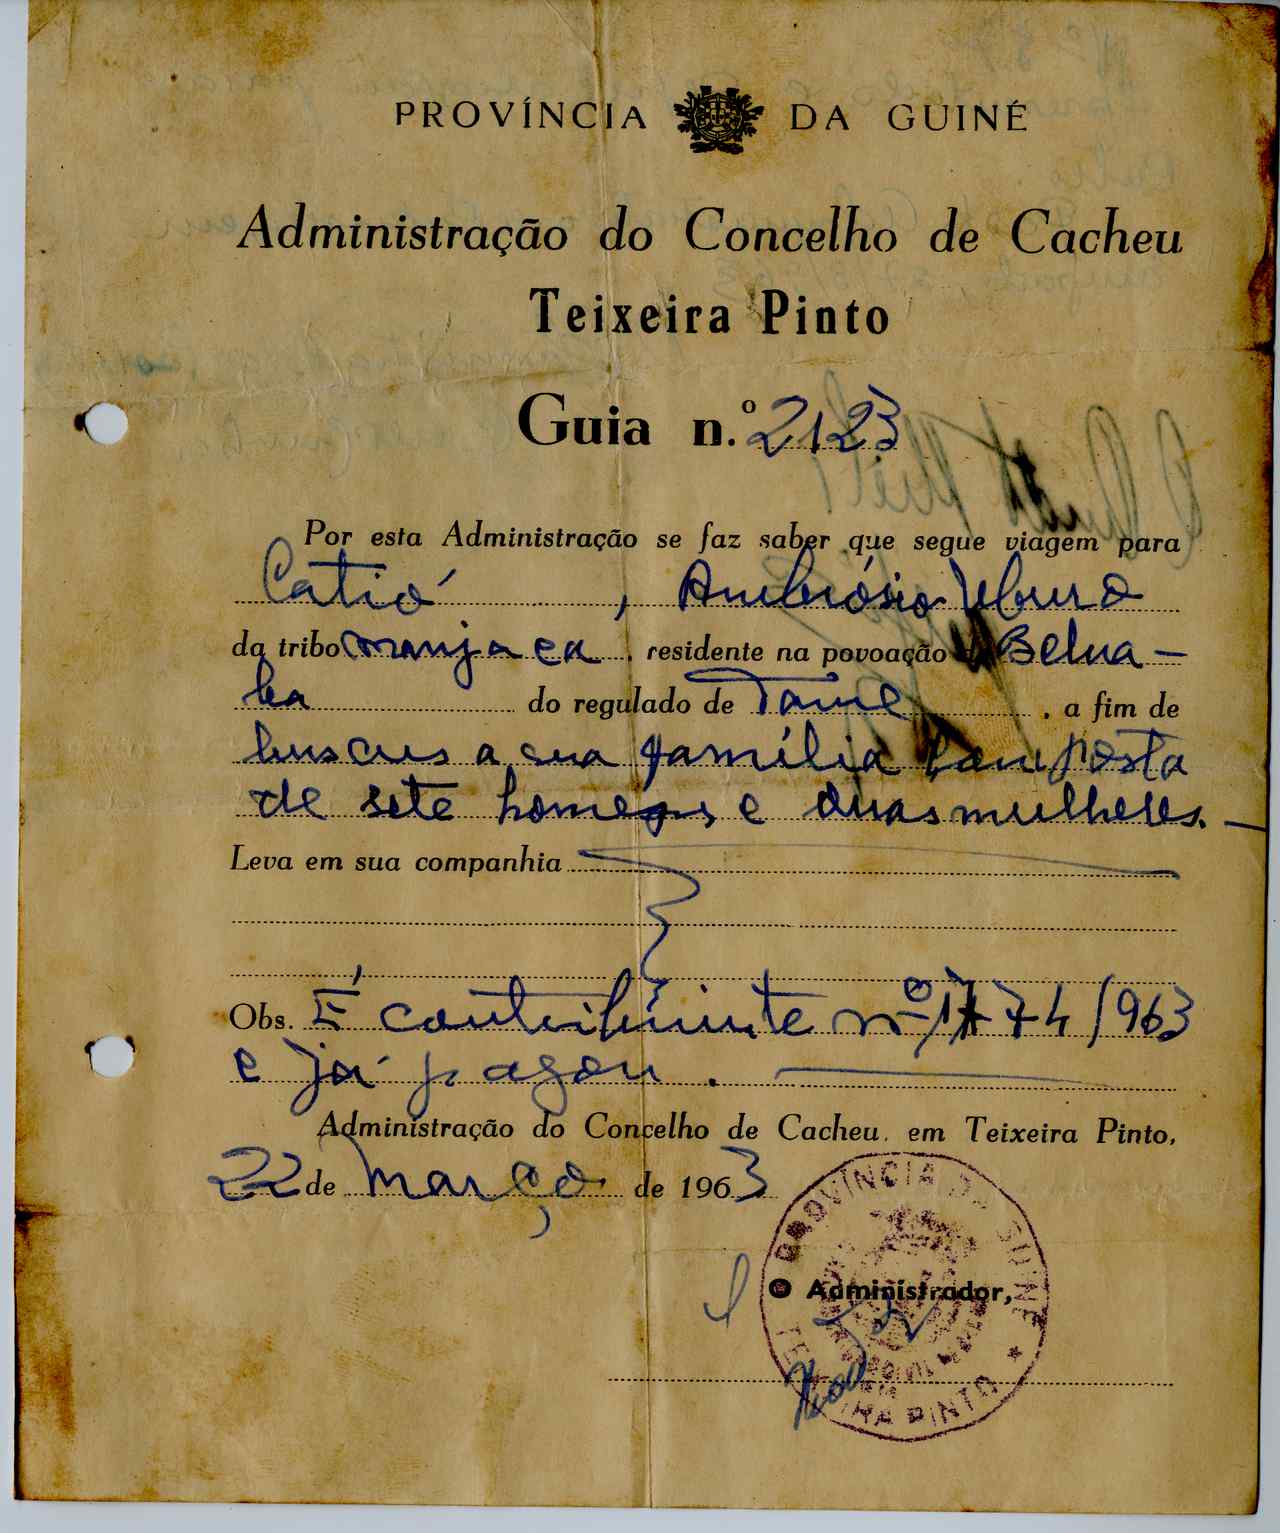 PROVÍNCIA DA GUINÉ
Administração do Concelho de Cacheu
Teixeira Pinto
Guia n.º 2123
Por esta Administração se faz saber que segue viagem para
Catió, Ambrósio
da tribo manjaca, residente na povoação de Belua-
ba do regulado de Tame, a fim de
buscar a sua família composta
de sete homens e duas mulheres.
Leva em sua companhia
Obs. É contribuinte nº 1774/963
e já pagou.
Administração do Concelho de Cacheu, em Teixeira Pinto,
22 de março de 1963
O Administrador,
PROVÍNCIA DA GUINÉ
TEIXEIRA PINTO